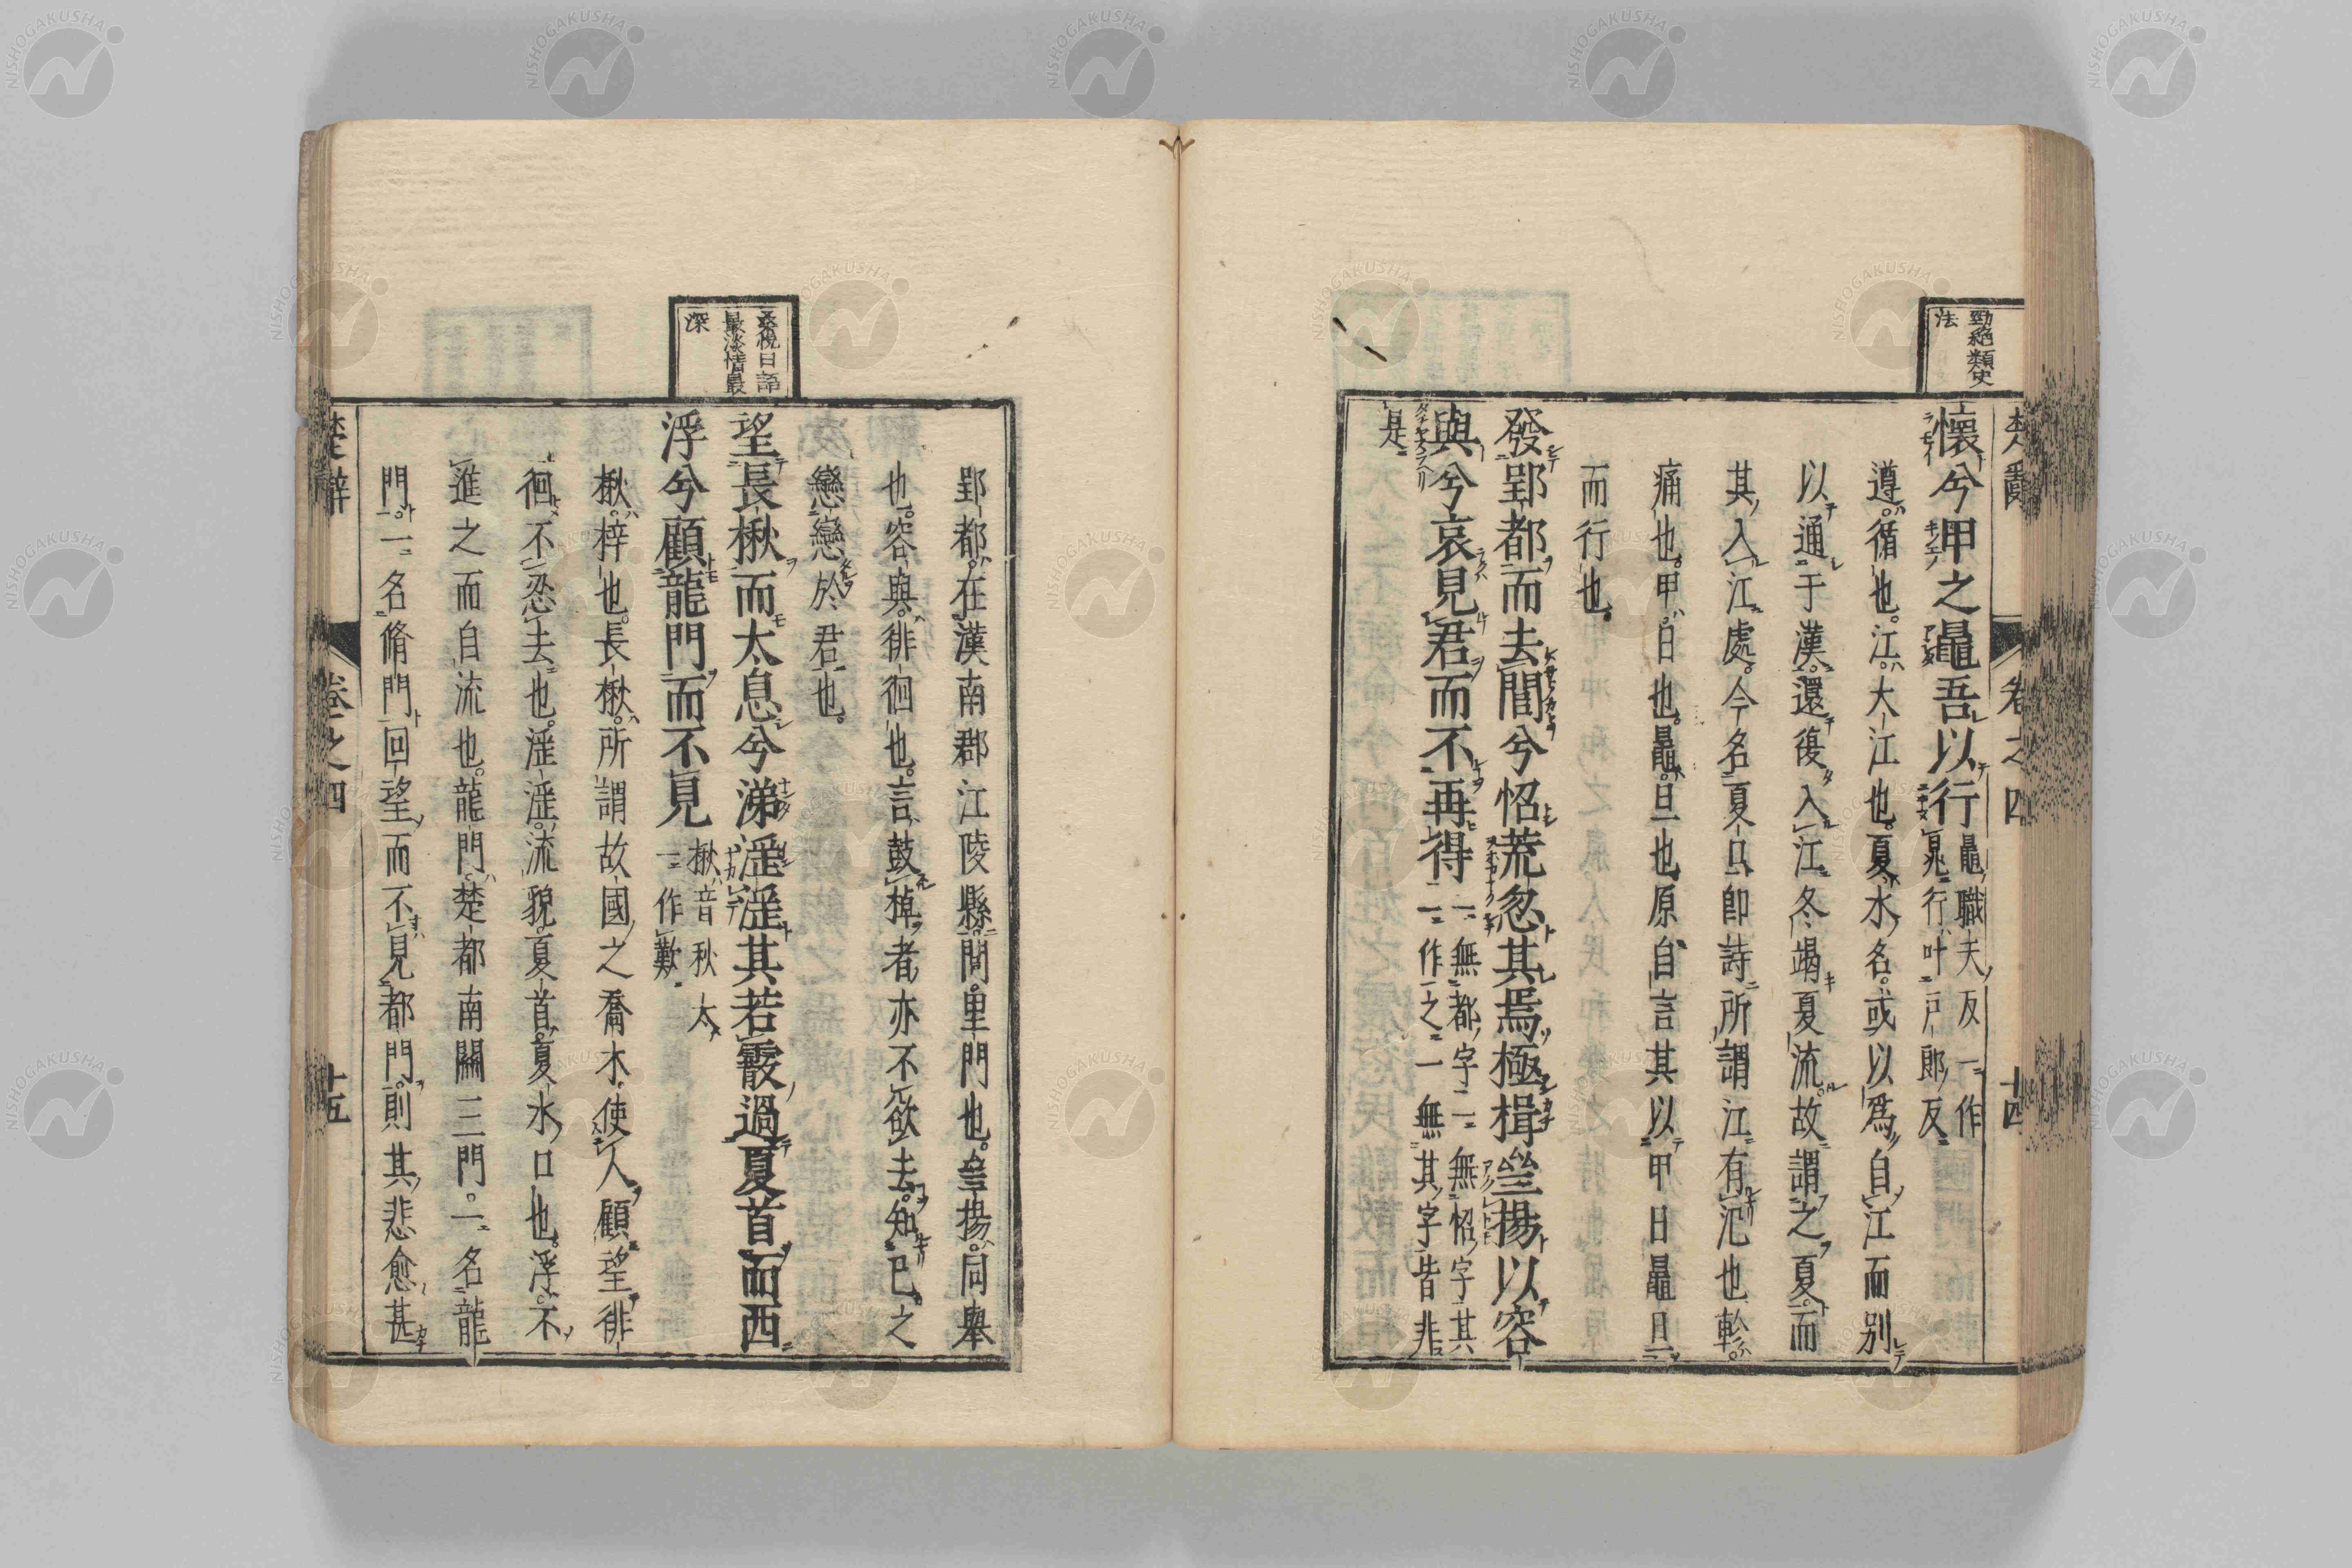 勁絶類史
法
楚辭 卷之四 十四
懷兮甲之鼂吾以行
鼂職夫反一作
鼌行叶戸郎反
遵循也江大江也夏水名或以爲自江而別
以通于漢還復入江冬竭夏流故謂之夏而
其入江處今名夏口即詩所謂江有汜也軫
痛也甲日也鼂旦也原自言其以甲日鼂旦
而行也
發郢都而去閭兮怊荒忽其焉極楫㒳揚以容
與兮哀見君而不再得
一無都字一無怊字其
一作之一無其字皆非
是
郢都在漢南郡江陵縣閭里門也㒳揚同舉
也容與徘徊也言鼓棹者亦不欲去知已之
戀戀於君也
桑悦曰語
最淡情最
深
望長楸而太息兮涕淫淫其若霰過夏首而西
浮兮顧龍門而不見
楸音秋太
一作歎
楸梓也長楸所謂故國之喬木使人顧望徘
徊不忍去也淫淫流貌夏首夏水口也浮不
進之而自流也龍門楚都南關三門一名龍
門一名脩門回望而不見都門則其悲愈甚
楚辭 卷之四 十五
NISHOGAKUSHA